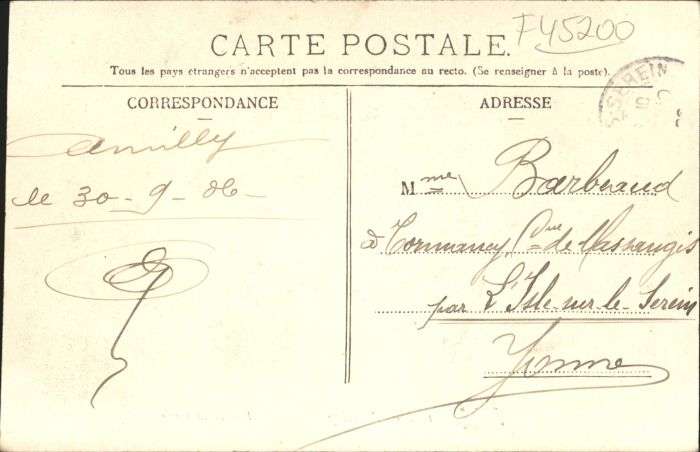 F45200
CARTE POSTALE.
Tous les pays étrangers n'acceptent pas la correspondance au recto. (Se renseigner à la poste).
CORRESPONDANCE
Amilly
le 30-9-06
ADRESSE
Mme Barberaud
à Tormancy, Cne de Massangis
par L'Isle-sur-le-Serein
Yonne
SEREIN